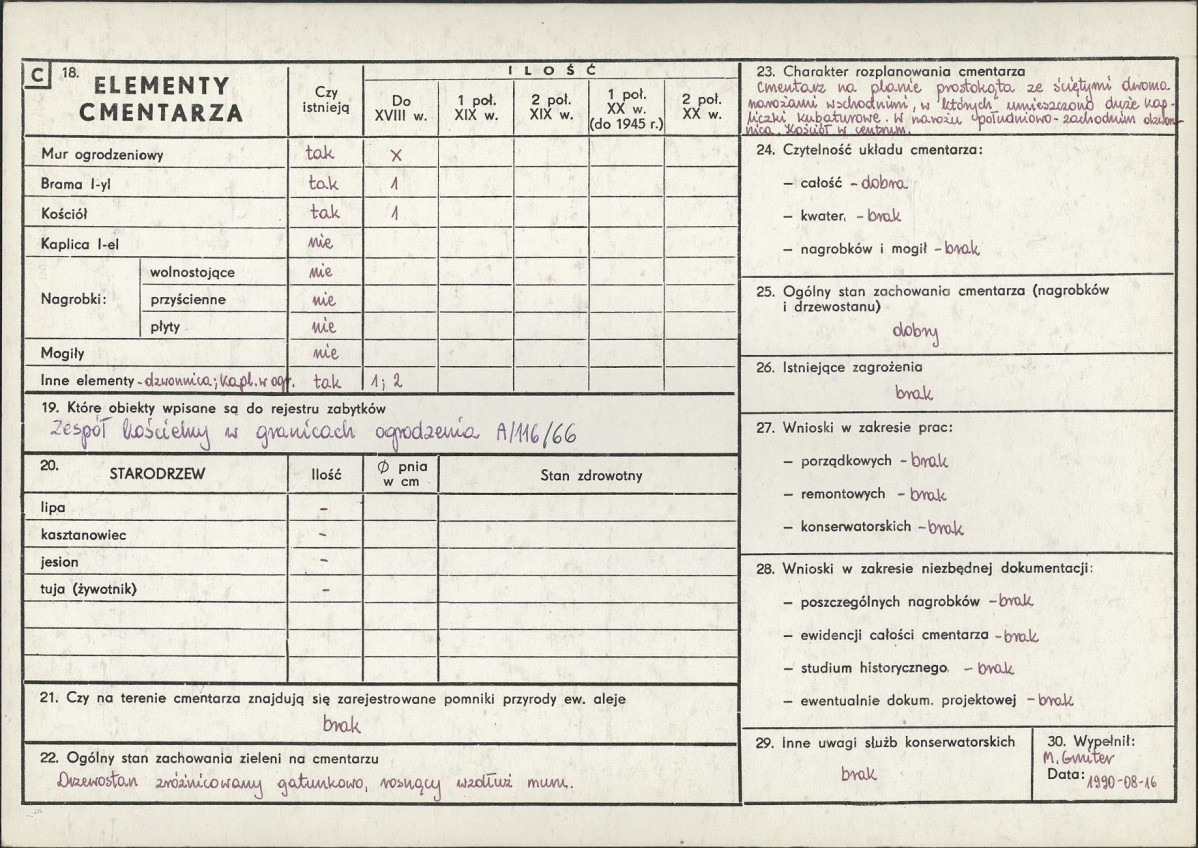 C 18. ELEMENTY CMENTARZA
Czy istnieją
ILOŚĆ
Do XVIII w.
1 poł. XIX w.
2 poł. XIX w.
1 poł. XX w. (do 1945 r.)
2 poł. XX w.
Mur ogrodzeniowy tak x
Brama l-yl tak 1
Kościół tak 1
Kaplica l-el nie
Nagrobki:
wolnostojące nie
przyścienne nie
płyty nie
Mogiły nie
Inne elementy - dzwonnica; kapl. w ogr. tak 1; 2
19. Które obiekty wpisane są do rejestru zabytków
Zespół kościelny w granicach ogrodzenia A/116/66
20. STARODRZEW
Ilość
Ø pnia w cm
Stan zdrowotny
lipa -
kasztanowiec -
jesion -
tuja (żywotnik) -
21. Czy na terenie cmentarza znajdują się zarejestrowane pomniki przyrody ew. aleje
brak
22. Ogólny stan zachowania zieleni na cmentarzu
Drzewostan zróżnicowany gatunkowo, rosnący wzdłuż muru.
23. Charakter rozplanowania cmentarza
Cmentarz na planie prostokąta ze ściętymi dwoma
narożami wschodnimi, w których umieszczono duże kap-
liczki kubaturowe. W narożu południowo-zachodnim dzwon-
nica. Kościół w centrum.
24. Czytelność układu cmentarza:
— całość - dobra
— kwater. - brak
— nagrobków i mogił - brak
25. Ogólny stan zachowania cmentarza (nagrobków
i drzewostanu)
dobry
26. Istniejące zagrożenia
brak
27. Wnioski w zakresie prac:
— porządkowych - brak
— remontowych - brak
— konserwatorskich - brak
28. Wnioski w zakresie niezbędnej dokumentacji:
— poszczególnych nagrobków - brak
— ewidencji całości cmentarza - brak
— studium historycznego - brak
— ewentualnie dokum. projektowej - brak
29. Inne uwagi służb konserwatorskich
brak
30. Wypełnił:
M. Gmiter
Data: 1990-08-16